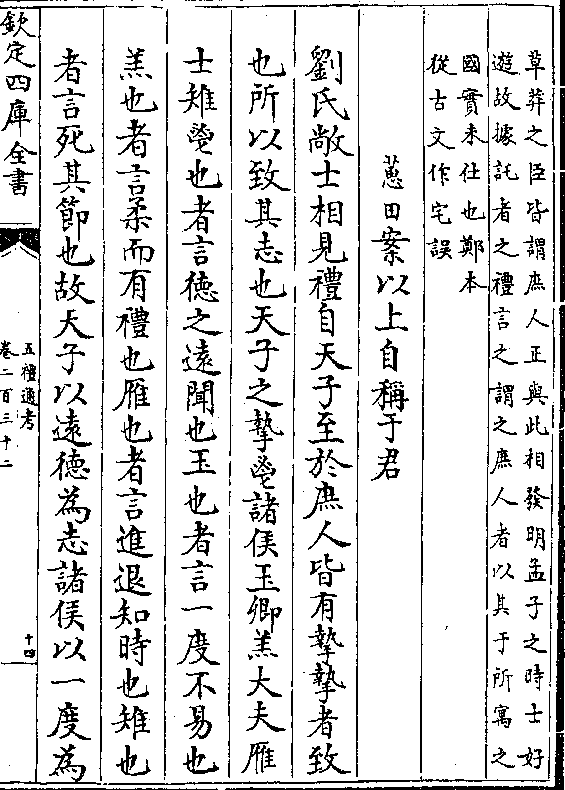 草莽之臣皆謂庶人正與此相發明孟子之時士好
遊故據託者之禮言之謂之庶人者以其于所寓之
國實未仕也鄭本
從古文作宅誤
蕙田案以上自稱于君
劉氏敞士相見禮自天子至於庶人皆有摯摯者致
也所以致其志也天子之摯鬯諸侯玉卿羔大夫雁
士雉鬯也者言德之遠聞也玉也者言一度不易也
羔也者言柔而有禮也雁也者言進退知時也雉也
者言死其節也故天子以遠德為志諸侯以一度為
欽定四庫全書
五禮通考
卷二百三十二
十四